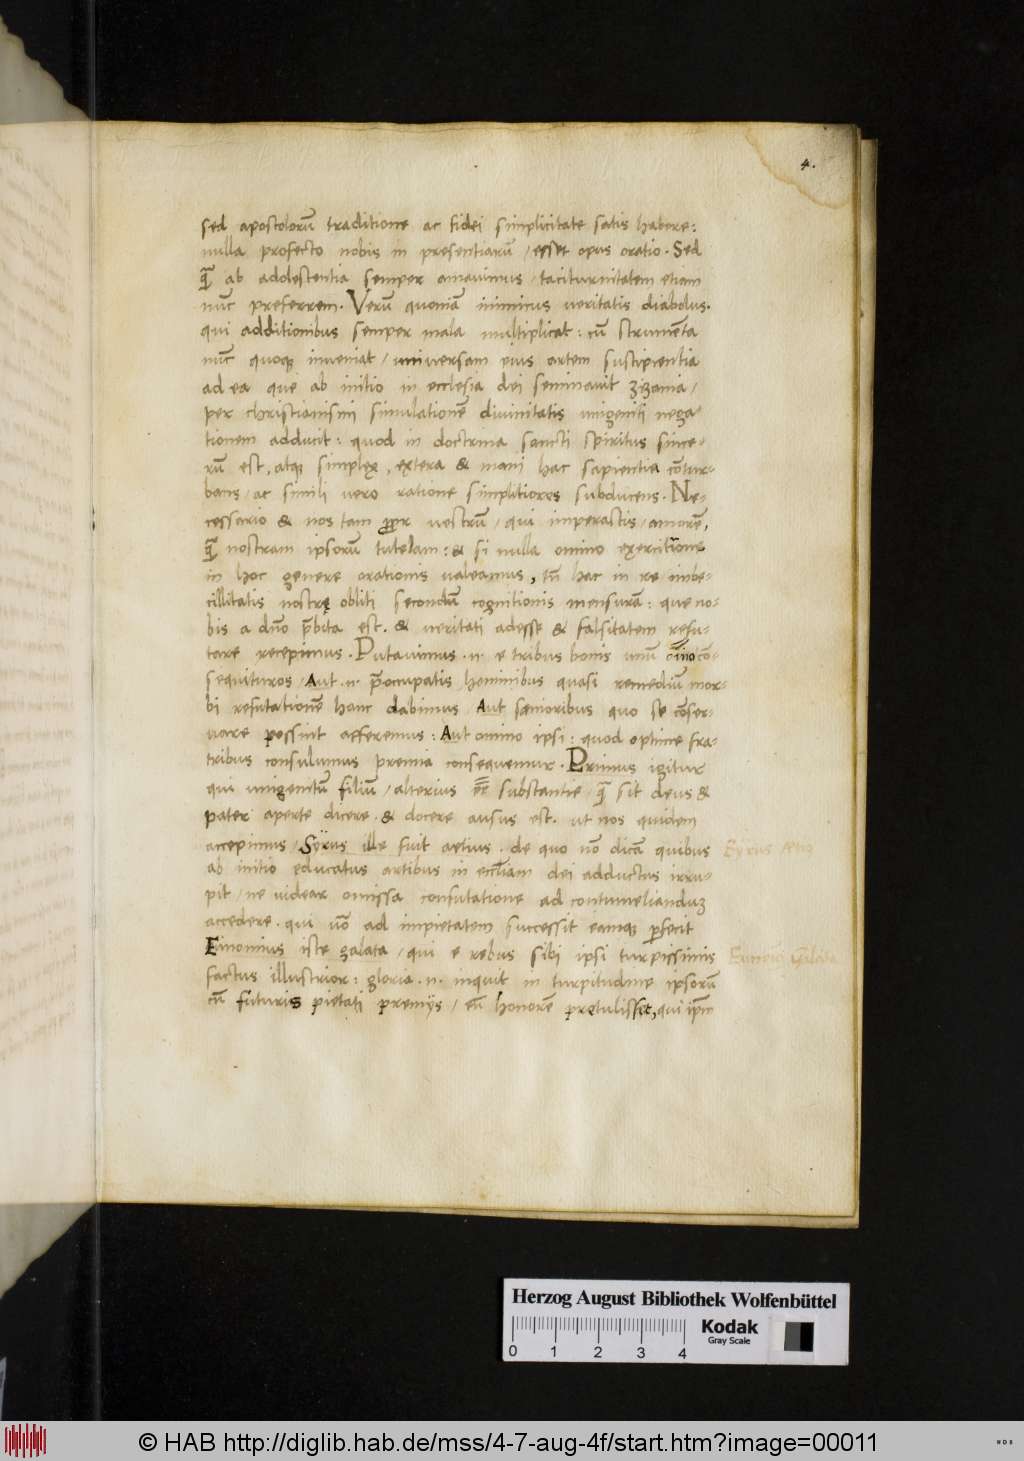 4.
sed apostolorũ traditione ac fidei simplicitate satis habere:
nulla profecto nobis in presentiarũ / esset opus oratio. Sed
q̃ ab adolescentia semper amavimus / taciturnitatem etiam
nũc preferrem. Verũ quoniã inimicus veritatis diabolus.
qui additionibus semper mala multiplicat: cũ strumẽta
nũc quoq inveniat / universam eius artem suscipientia
ad ea que ab initio in ecclesia dei seminavit zizania /
per christianismi simulationẽ divinitatis unigeniti nega-
tionem adducit: quod in doctrina sancti spiritus since-
rũ est, atq simplex, extera & inani hac sapientia cõtur-
bans / ac simili vero ratione simplitiores subducens. Ne-
cessario & nos tam ꝓpr vestrũ / qui imperastis / amorẽ,
q̃ nostram ipsorũ tutelam: & si nulla omino exercitatione
in hoc genere orationis valeamus, tñ hac in re imbe-
cillitatis nostrę obliti secondũ cognitionis mensurã: que no-
bis a dño p̃bita est. & veritati adesse & falsitatem refu-
tare recepimus. Putavimus .n. e tribus bonis unũ oĩno cõ-
sequituros / Aut .n. p̃occupatis hominibus quasi remediũ mor-
bi refutationẽ hanc dabimus / Aut sanioribus quo se cõser-
vare possint afferemus: Aut omino ipsi: quod optime fra-
tribus consulumus premia consequemur. Primus igitur
qui unigenitũ filiũ / alterius eẽ substantie / q̃ sit deus &
pater aperte dicere . & docere ausus est. ut nos quidem
accepimus / Syrus ille fuit aetius . de quo nõ dicã quibus
Syrus Aetio
ab initio educatus artibus in eccliam dei adductus irru-
pit / ne videar omissa confutatione ad contumeliandum
accedere . qui võ ad impietatem successit eamq perfecit
Einomius iste galata / qui e rebus sibi ipsi turpissimis
Eunomi galata
factus illustrior: gloria .n. inquit in turpitudine ipsorũ
cũ futuris pietati premijs / eũ honorẽ pretulisset, qui ip̃m
Herzog August Bibliothek Wolfenbüttel
0 1 2 3 4
Kodak
Gray Scale
© HAB http://diglib.hab.de/mss/4-7-aug-4f/start.htm?image=00011